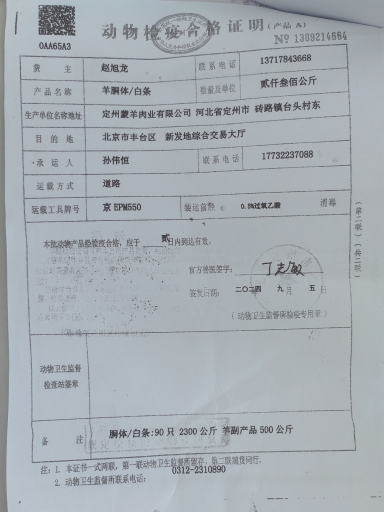 动物检疫合格证明(产品A)
0AA65A3
№ 1389214664
货 主 赵旭龙 联系电话 13717843668
产品名称 羊胴体/白条 数量及单位 贰仟叁佰公斤
生产单位名称地址 定州蒙羊肉业有限公司 河北省定州市 砖路镇台头村东
目的地 北京市丰台区 新发地综合交易大厅
承运人 孙伟恒 联系电话 17732237088
运载方式 道路
运载工具牌号 京EPM550 装运前熬 0.5%过氧乙酸 消毒
本批动物产品经检疫合格,应于 贰 日内到达有效。
官方兽医签字: 丁志敏
签发日期: 二〇二四 九 月 五 日
(动物卫生监督所检疫专用章)
动物卫生监督
检查站签章
备 注 胴体/白条:90只 2300公斤 羊副产品500公斤
注:1. 本证书一式两联,第一联动物卫生监督所留存,第二联随货同行.
2. 动物卫生监督所联系电话: 0312-2310890
(第二联)
(共二联)